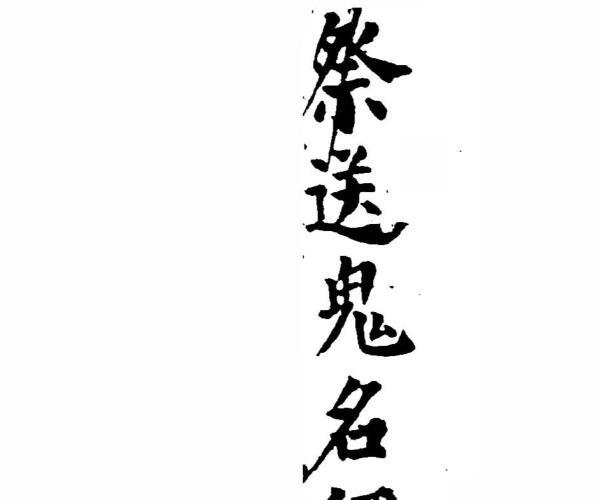 祭送鬼名